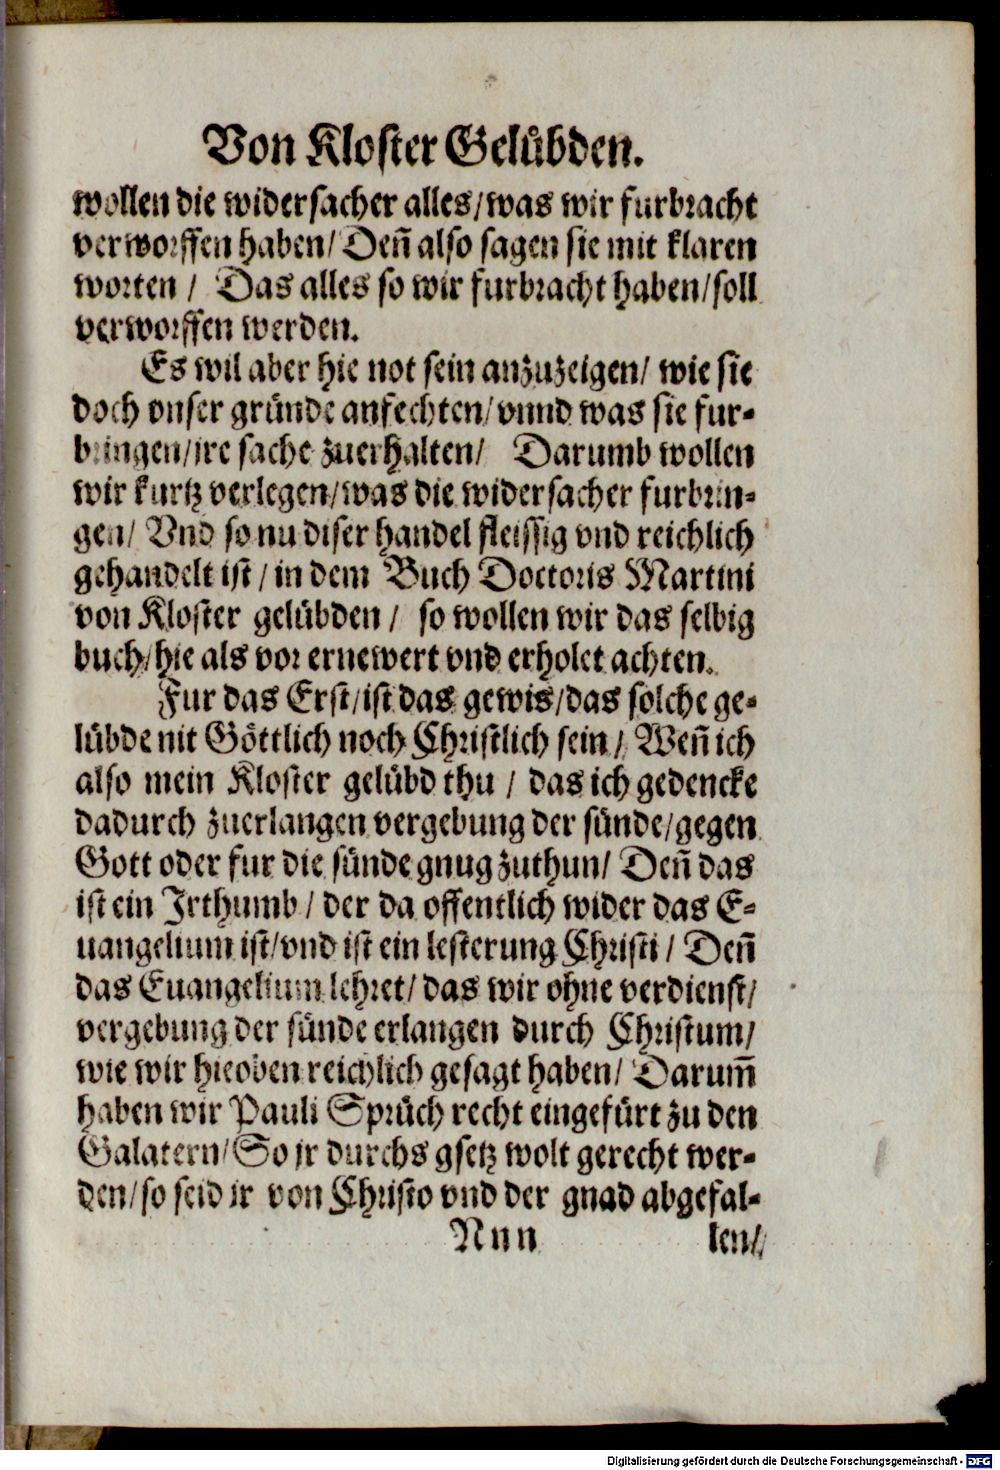 Von Kloster Gelübden.
wollen die widersacher alles/was wir furbracht
verworffen haben/ Deñ also sagen sie mit klaren
worten / Das alles so wir furbracht haben/soll
verworffen werden.
Es wil aber hie not sein anzuzeigen/ wie sie
doch vnser gründe anfechten/vnnd was sie fur-
bringen/jre sache zuerhalten/ Darumb wollen
wir kurtz verlegen/was die widersacher furbrin-
gen/ Vnd so nu diser handel fleissig vnd reichlich
gehandelt ist / in dem Buch Doctoris Martini
von Kloster gelübden / so wollen wir das selbig
buch/hie als vor ernewert vnd erholet achten.
Fur das Erst/ist das gewis/das solche ge-
lübde nit Göttlich noch Christlich sein / Weñ ich
also mein Kloster gelübd thu / das ich gedencke
dadurch zuerlangen vergebung der sünde/gegen
Gott oder fur die sünde gnug zuthun/ Deñ das
ist ein Irthumb / der da offentlich wider das E-
uangelium ist/vnd ist ein lesterung Christi / Deñ
das Euangelium lehret/ das wir ohne verdienst/
vergebung der sünde erlangen durch Christum/
wie wir hieoben reichlich gesagt haben/ Darum̃
haben wir Pauli Sprüch recht eingefürt zu den
Galatern/So jr durchs gsetz wolt gerecht wer-
den/so seid ir von Christo vnd der gnad abgefal-
Nnn len/
Digitalisierung gefördert durch die Deutsche Forschungsgemeinschaft - DFG